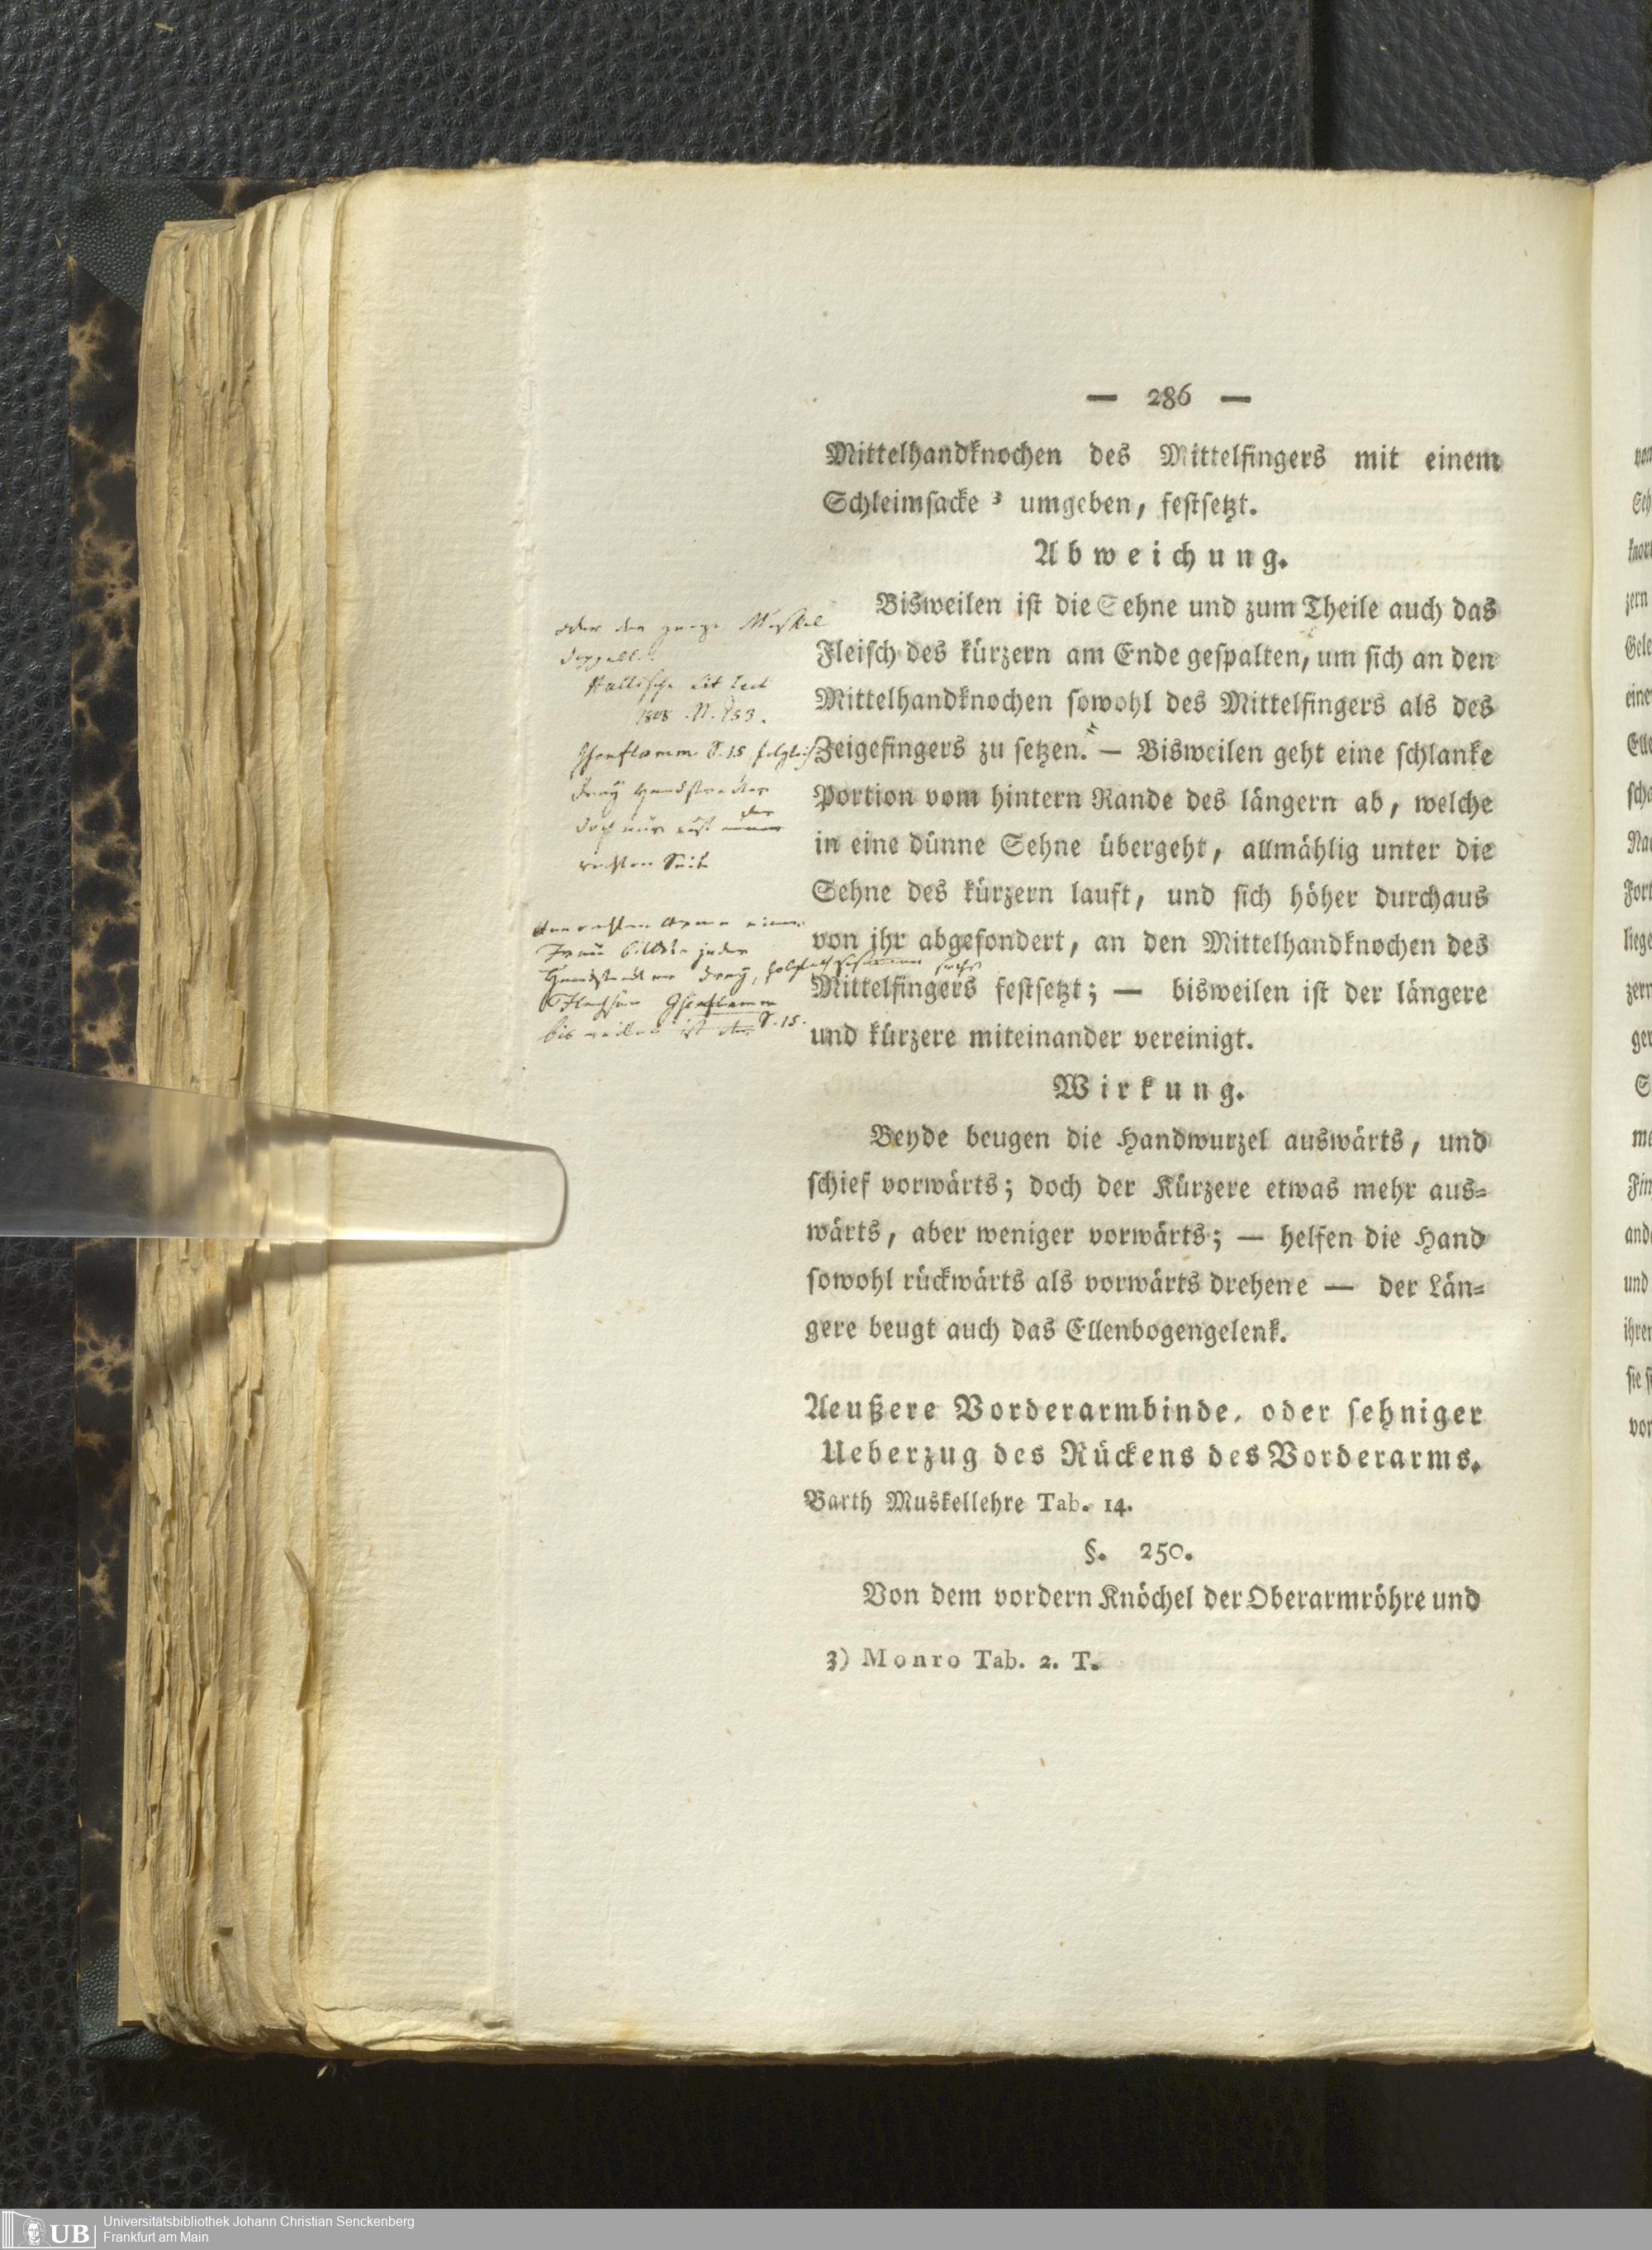 — 286 —
Mittelhandknochen des Mittelfingers mit einem
Schleimſacke ³ umgeben, feſtſetzt.
Abweichung.
Bisweilen iſt die Sehne und zum Theile auch das
Fleiſch des kürzern am Ende geſpalten, um ſich an den
Mittelhandknochen ſowohl des Mittelfingers als des
Zeigefingers zu ſetzen. — Bisweilen geht eine ſchlanke
Portion vom hintern Rande des längern ab, welche
in eine dünne Sehne übergeht, allmählig unter die
Sehne des kürzern lauft, und ſich höher durchaus
von ihr abgeſondert, an den Mittelhandknochen des
Mittelfingers feſtſetzt; — bisweilen iſt der längere
und kürzere miteinander vereinigt.
Wirkung.
Beyde beugen die Handwurzel auswärts, und
ſchief vorwärts; doch der Kürzere etwas mehr aus-
wärts, aber weniger vorwärts; — helfen die Hand
ſowohl rückwärts als vorwärts drehene — der Län-
gere beugt auch das Ellenbogengelenk.
Aeußere Vorderarmbinde, oder ſehniger
Ueberzug des Rückens des Vorderarms.
Barth Muskellehre Tab. 14.
§. 250.
Von dem vordern Knöchel der Oberarmröhre und
3) Monro Tab. 2. T.
oder der ganze Muskel
doppelt.
Hallische Lit
1808. N.
S. 15
drey Handstrecker
doch nur auf der
rechten Seite
rechten Arme einer
Frau bildete jeder
Handstrecker drey, folglich zusammen sechs
Flechsen
bisweilen ist S. 15.
Universitätsbibliothek Johann Christian Senckenberg
Frankfurt am Main
UB